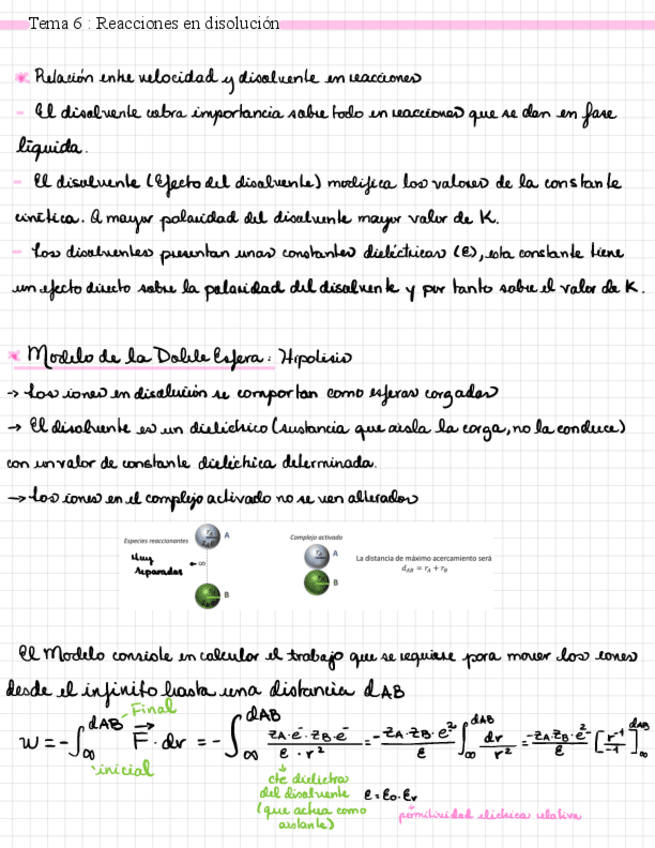 Tema 6 : Reacciones en disolución
* Relación entre velocidad y disolvente en reacciones
- El disolvente cobra importancia sobre todo en reacciones que se dan en fase
líquida.
- El disolvente (Efecto del disolvente) modifica los valores de la constante
cinética. A mayor polaridad del disolvente mayor valor de K.
- Los disolventes presentan unas constantes dieléctricas (ε), esta constante tiene
un efecto directo sobre la polaridad del disolvente y por tanto sobre el valor de K.
* Modelo de la Doble Esfera: Hipótesis
→ Los iones en disolución se comportan como esferas cargadas
→ El disolvente es un dieléctrico (sustancia que aisla la carga, no la conduce)
con un valor de constante dieléctrica determinada.
→ Los iones en el complejo activado no se ven alterados
Especies reaccionantes A
Muy separadas ∞
B
Complejo activado A
B
La distancia de máximo acercamiento será
d_AB = r_A + r_B
El Modelo consiste en calcular el trabajo que se requiere para mover los iones
desde el infinito hasta una distancia dAB
w = -∫_∞^dAB F⃗ · dr = -∫_∞^dAB (zA·e⁻·zB·e⁻)/(ε·r²) = (-zA·zB·e²)/ε ∫_∞^dAB dr/r² = (-zA·zB·e²)/ε [r⁻¹/-1]_∞^dAB
Final
inicial
cte dieléctrica
del disolvente
(que actua como
aislante)
ε = ε0·εr
permitividad eléctrica relativa